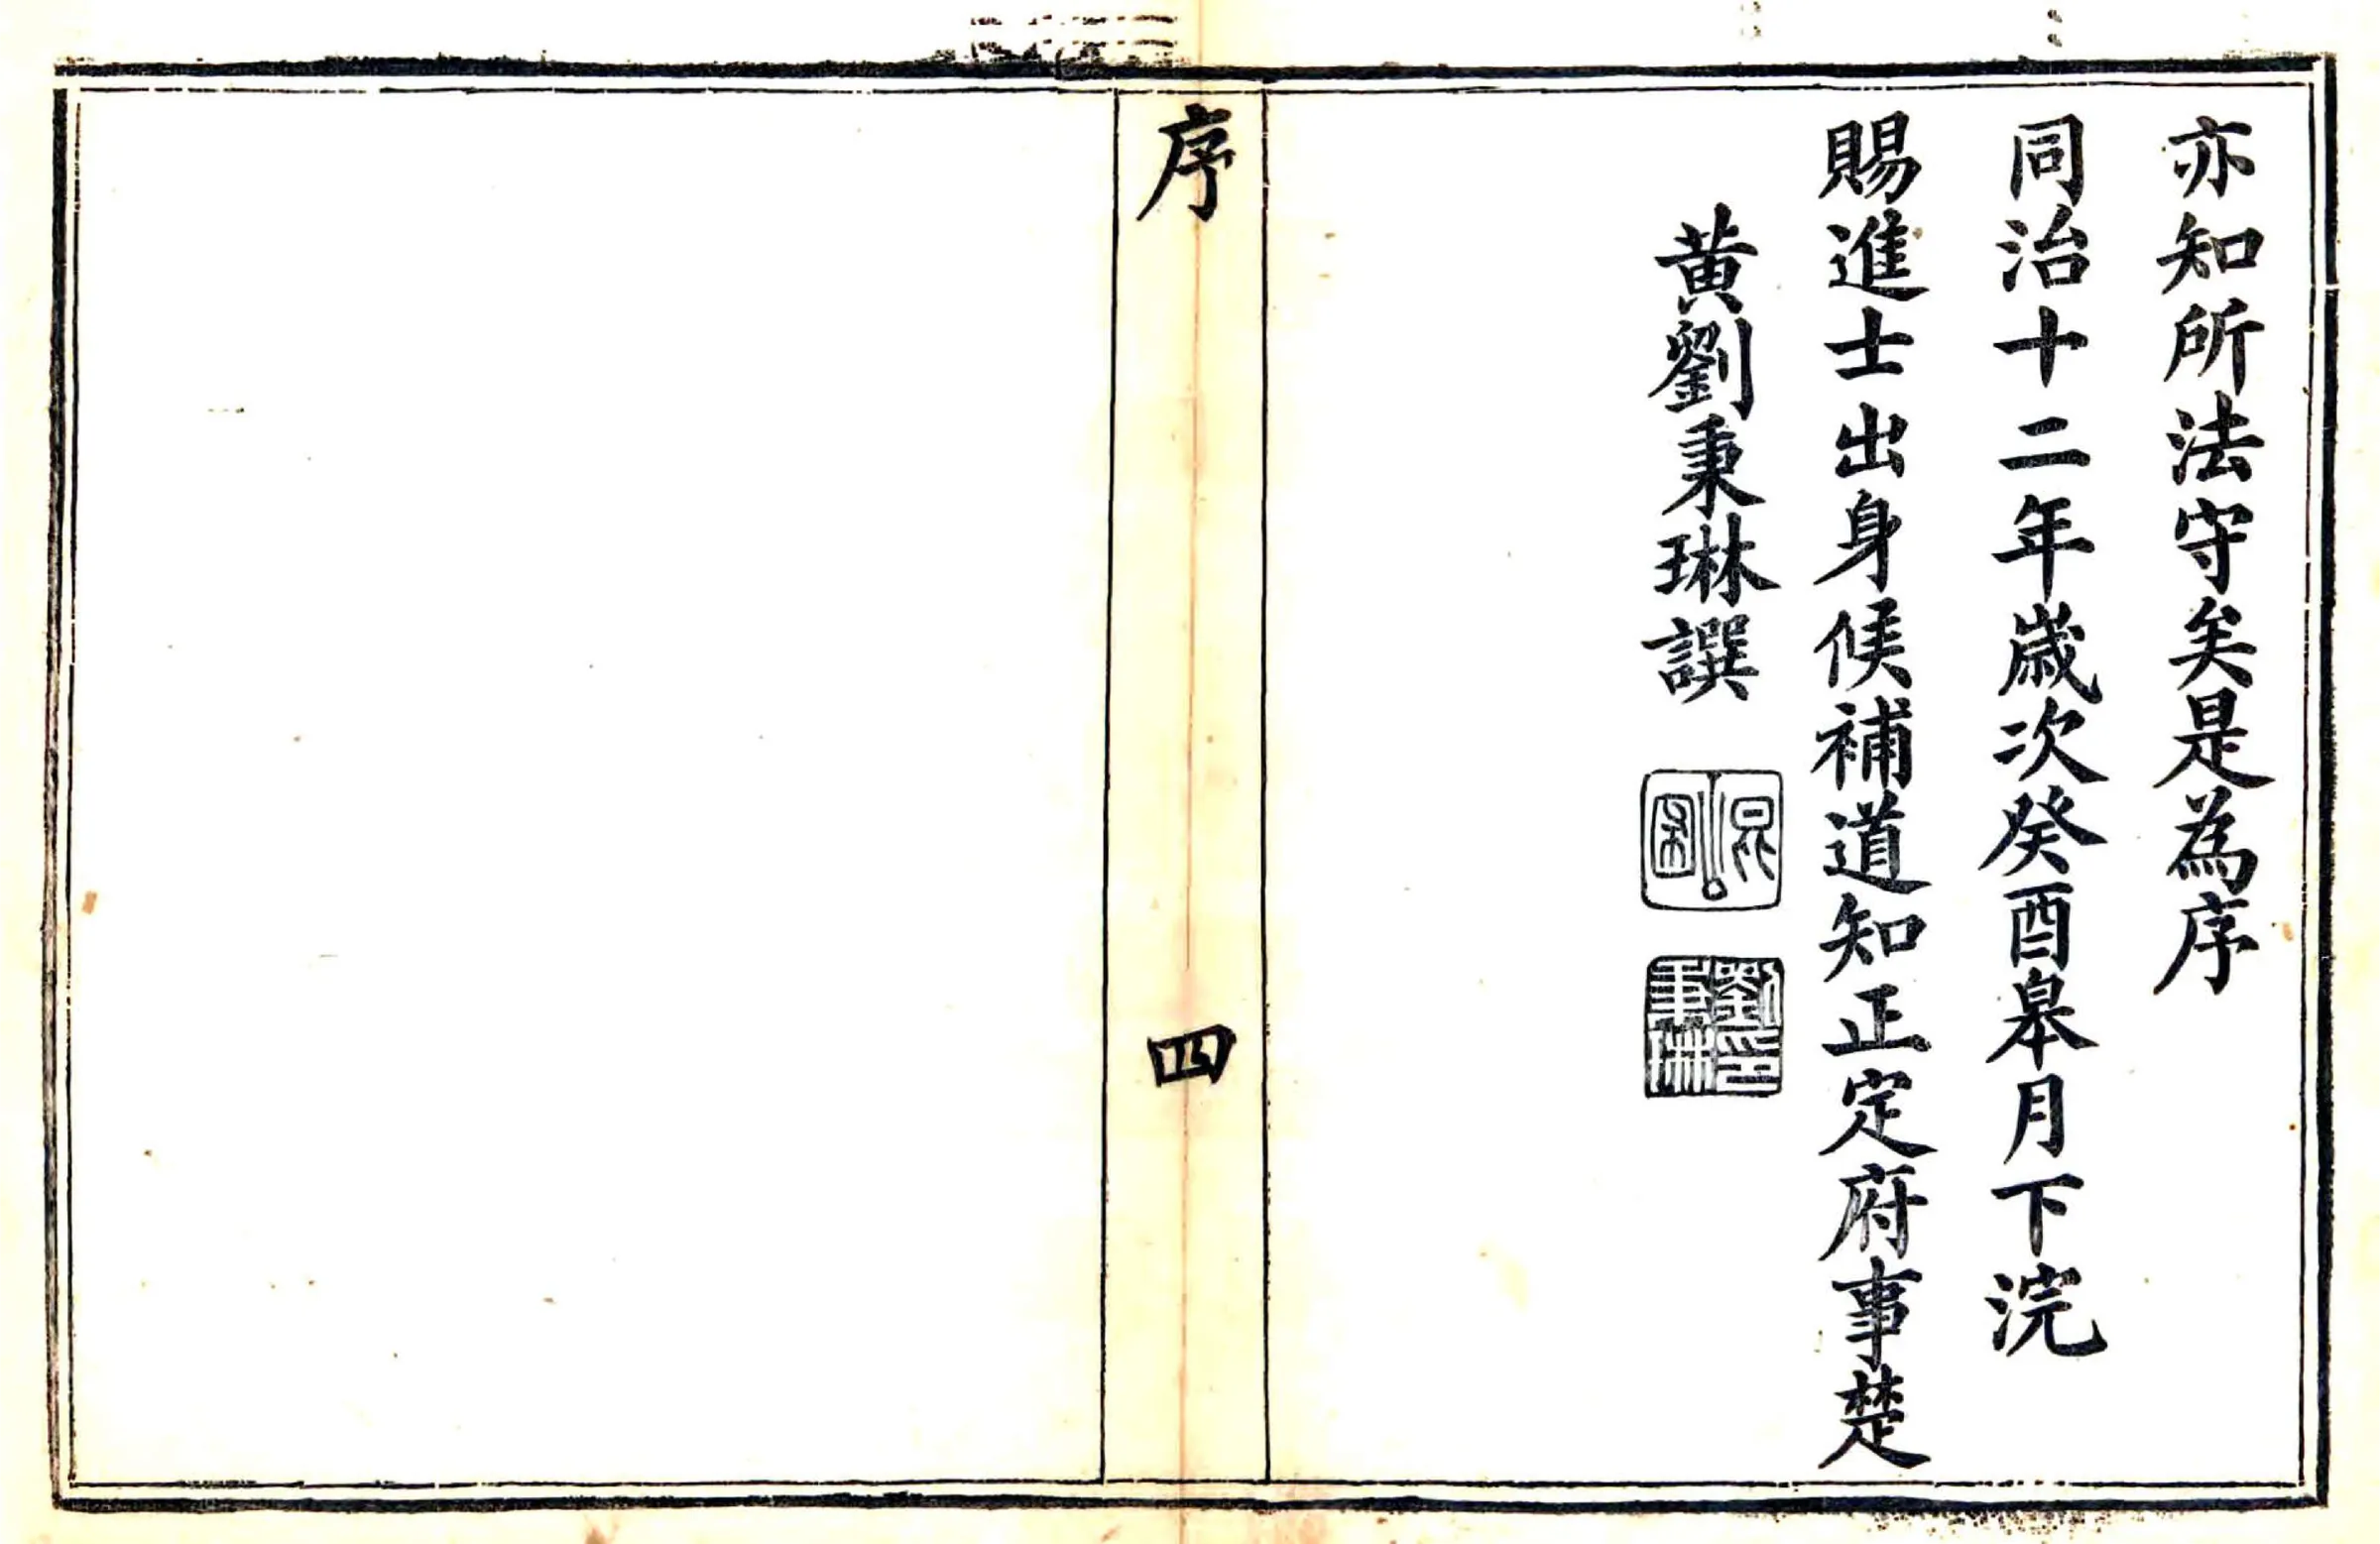 亦知所法守矣是為序
同治十二年歲次癸酉皋月下浣
賜進士出身候補道知正定府事楚
黃劉秉琳譔
劉印秉琳
序
四